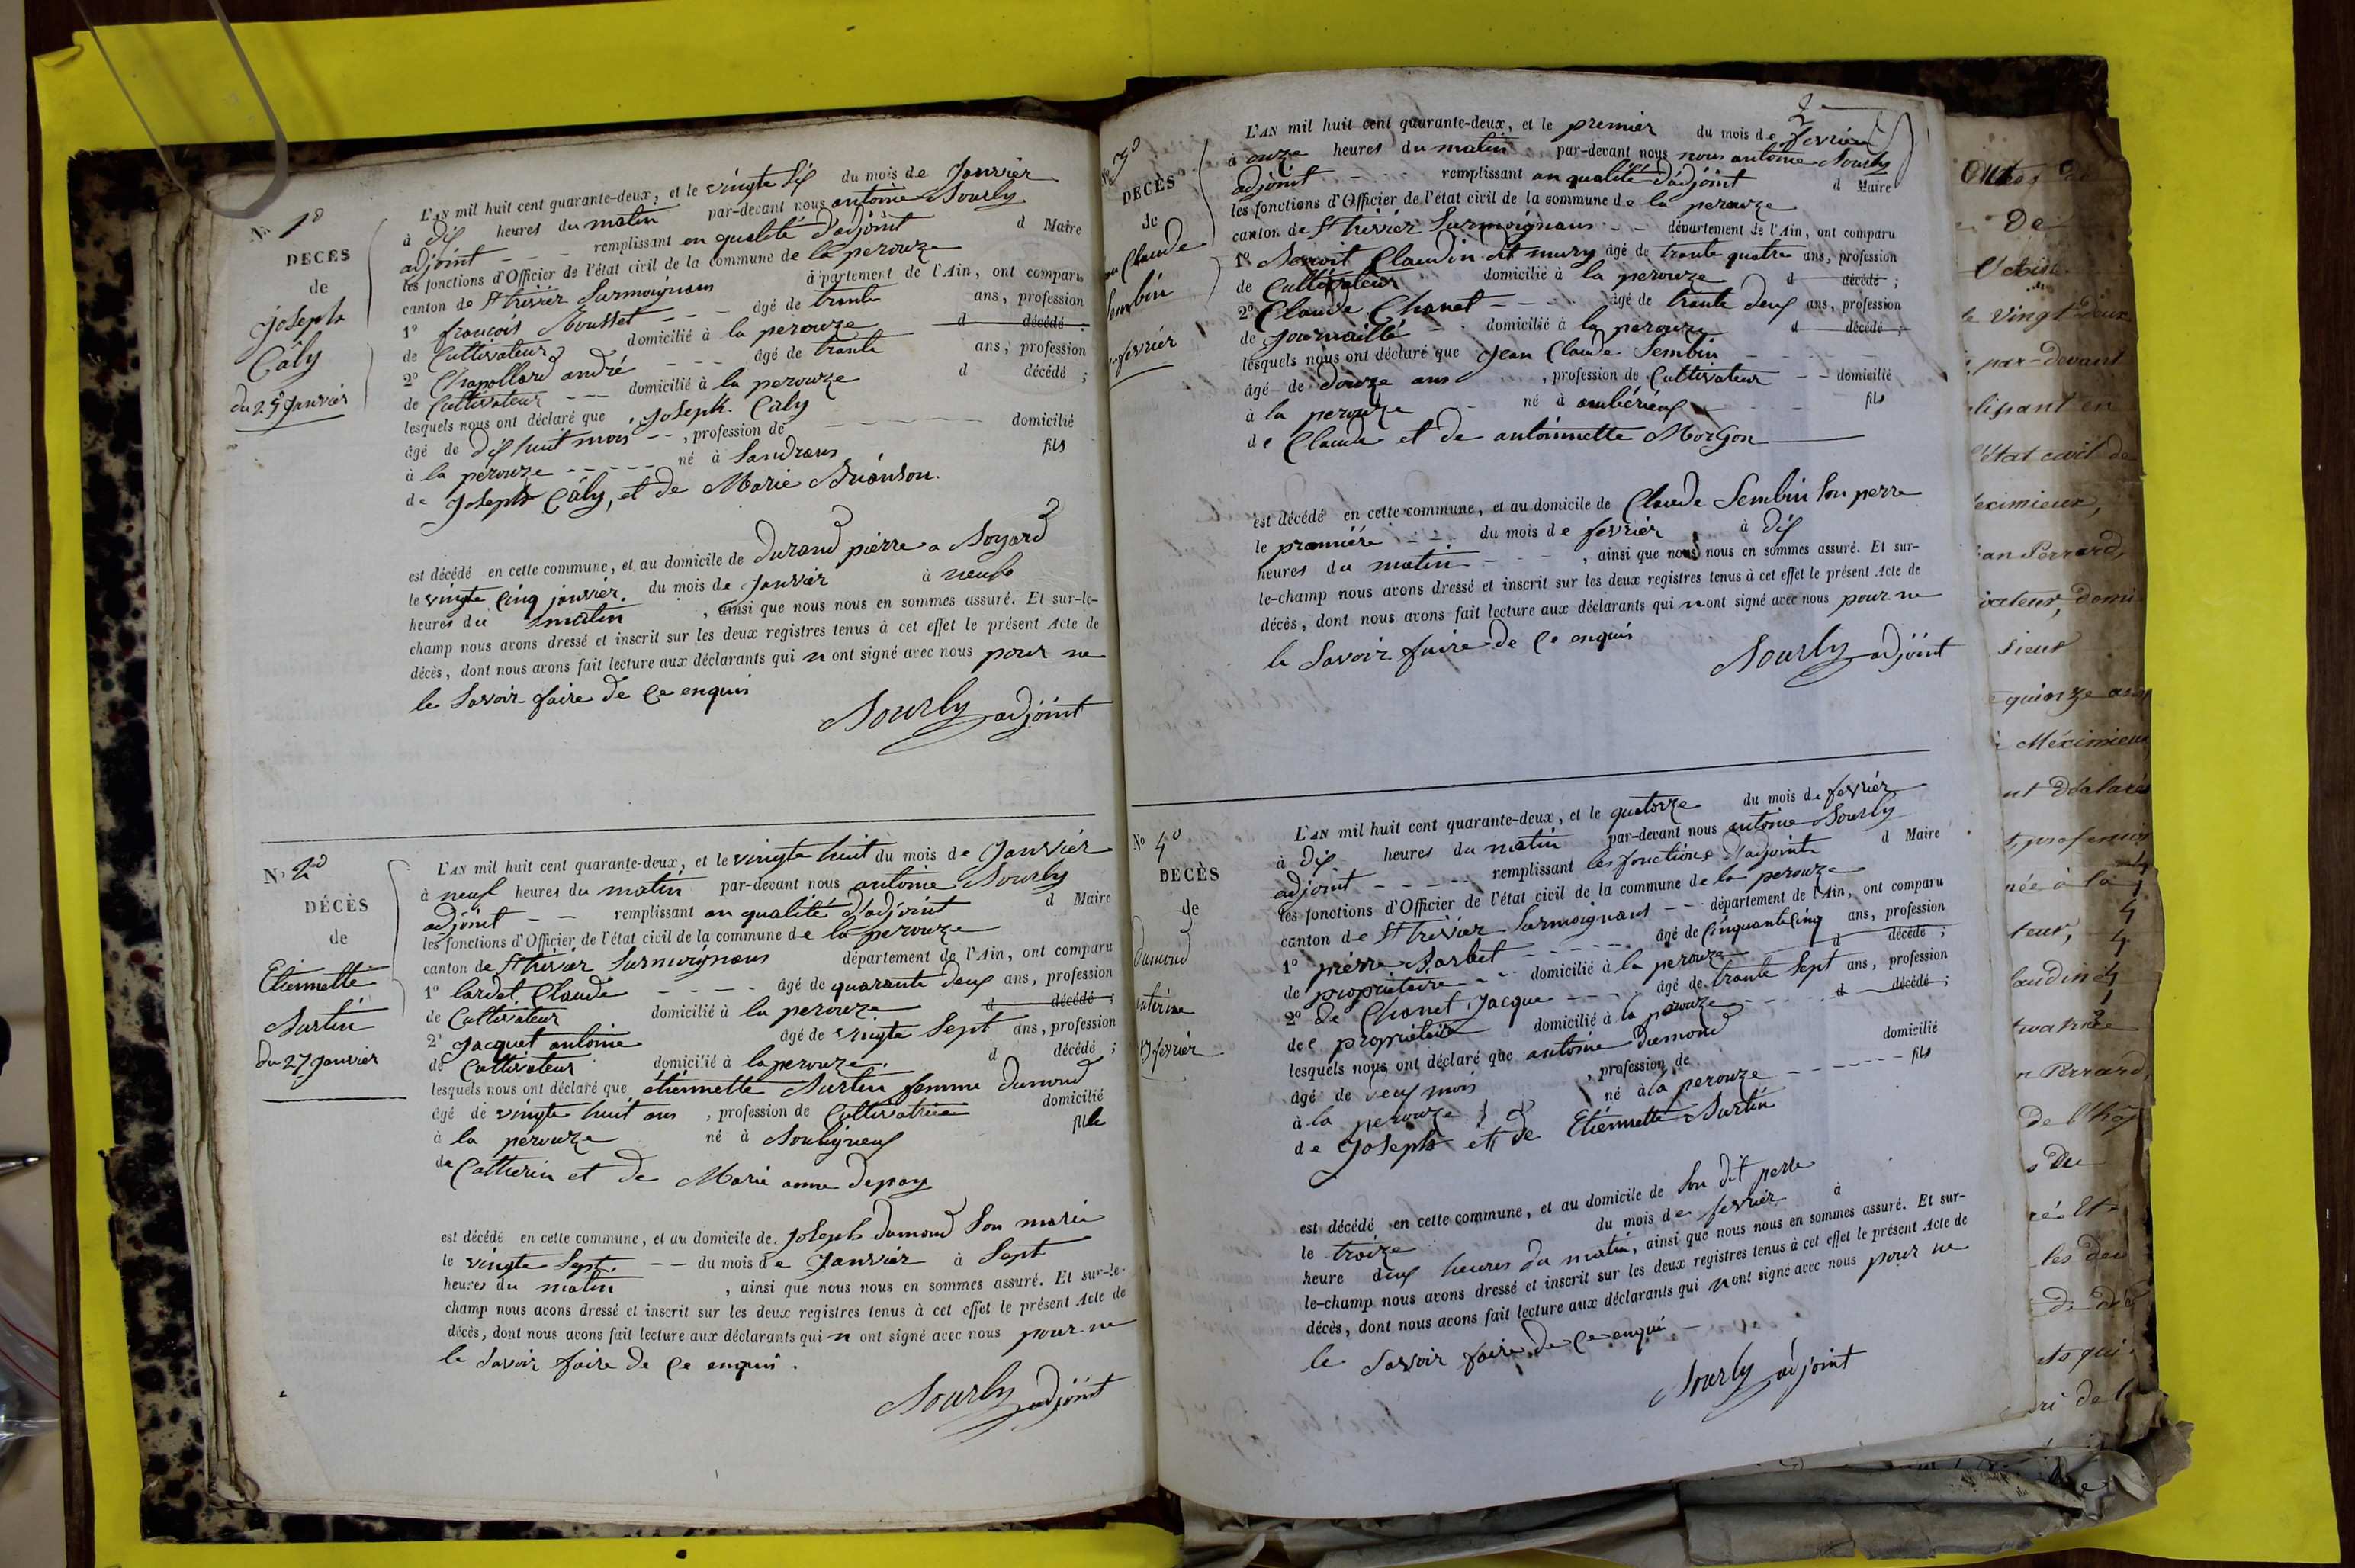 N° 1°
DÉCÈS
de
joseph
Câly
du 25 janvier
L'AN mil huit cent quarante-deux, et le vingte six du mois de janvier
à dix heures du matin par-devant nous antoine Sourly
adjoint remplissant en qualité d'adjoint d Maire
les fonctions d'Officier de l'état civil de la commune de la perouze
canton de St trivier Surmoignans département de l'Ain, ont comparu
1° françois Mousset âgé de trante ans, profession
de Cultivateur domicilié à la perouze d décédé ;
2° Chapolland andré âgé de trante ans, profession
de Cultivateur domicilié à la perouze d décédé ;
lesquels nous ont déclaré que joseph Câly
âgé de dix huit mois , profession de domicilié
à la perouze né à Sandrans fils
de joseph Câly, et de Marie Briánson.
est décédé en cette commune, et au domicile de durand pierre a
le vingte Cinq janvier. du mois de janvier à neufe
heures du matin , ainsi que nous nous en sommes assuré. Et sur-le-
champ nous avons dressé et inscrit sur les deux registres tenus à cet effet le présent Acte de
décès, dont nous avons fait lecture aux déclarants qui n ont signé avec nous pour ne
le Savoir faire de Ce enquis
Sourly adjoint
N° 2°
DÉCÈS
de
Etiennette
Martin
du 27 janvier
L'AN mil huit cent quarante-deux, et le vingte huit du mois de janvier
à neuf heures du matin par-devant nous antoine Sourly
adjoint remplissant en qualité d'adjoint d Maire
les fonctions d'Officier de l'état civil de la commune de la perouze
canton de St trivier Surmoignans département de l'Ain, ont comparu
1° lardet Claude âgé de quarante deux ans, profession
de Cultivateur domicilié à la perouze d décédé ;
2° jacquet antoine âgé de vingte Sept ans, profession
de Cultivateur domicilié à laperouze. d décédé ;
lesquels nous ont déclaré que étiennette Martin femme dumond
âgé de vingte huit ans , profession de Cultivatrice domicilié
à la perouze né à Bouligneux fille
de Catherin et de Marie anne depay
est décédé en cette commune, et au domicile de joseph dumond Son marie
le vingte Sept. du mois de janvier à Sept
heures du matin , ainsi que nous nous en sommes assuré. Et sur-le-
champ nous avons dressé et inscrit sur les deux registres tenus à cet effet le présent Acte de
décès, dont nous avons fait lecture aux déclarants qui n ont signé avec nous pour ne
le Savoir faire de Ce enquis.
Sourly adjoint
2
N° 3°
DÉCÈS
de
Claude
Sembin
février
L'AN mil huit cent quarante-deux, et le premier du mois de février
à onze heures du matin par-devant nous nous antoine Sourly
adjoint remplissant en qualité d'adjoint d Maire
les fonctions d'Officier de l'état civil de la commune de la perouze
canton de St trivier Surmoignans département de l'Ain, ont comparu
1° Benoit Claudin dit mury âgé de trante quatre ans, profession
de Cultivateur domicilié à la perouze d décédé ;
2° Claude Chanet âgé de trante deux ans, profession
de journaillé domicilié à la perouze d décédé ;
lesquels nous ont déclaré que jean Claude Sembin
âgé de douze ans , profession de Cultivateur domicilié
à la perouze né à ambérieux fils
de Claude et de antoinnette Morgon
est décédé en cette commune, et au domicile de Claude Sembin Son perre
le premiére du mois de février à dix
heures du matin , ainsi que nous nous en sommes assuré. Et sur-
le-champ nous avons dressé et inscrit sur les deux registres tenus à cet effet le présent Acte de
décès, dont nous avons fait lecture aux déclarants qui n ont signé avec nous pour ne
le Savoir faire de Ce enquis
Sourly adjoint
N° 4°
DÉCÈS
de
dumond
antoine
13 février
L'AN mil huit cent quarante-deux, et le quatorze du mois de février
à dix heures du matin par-devant nous antoine Sourly
adjoint remplissant les fonctions d'adjoint d Maire
les fonctions d'Officier de l'état civil de la commune de la perouze
canton de St trivier Surmoignans département de l'Ain, ont comparu
1° pierre Barbet âgé de Cinquante Cinq ans, profession
de propriétaire domicilié à la perouze d décédé ;
2° de Chanet jacque âgé de trante Sept ans, profession
de propriétaire domicilié à la perouze d décédé ;
lesquels nous ont déclaré que antoine dumond
âgé de deux mois , profession de domicilié
à la perouze né à la perouze fils
de joseph et de Etiennette Martin
est décédé en cette commune, et au domicile de Son dit perre
le treize du mois de février à
heure deux heures du matin, ainsi que nous nous en sommes assuré. Et sur-
le-champ nous avons dressé et inscrit sur les deux registres tenus à cet effet le présent Acte de
décès, dont nous avons fait lecture aux déclarants qui n ont signé avec nous pour ne
le Savoir faire de Ce enqui
Sourly adjoint
De
le vingt deux
par-devant
l'état civil de
eximieux,
an Perrard,
domi
sieur
quinze ans
Méximieux
nt déclarés
née à la
n Perrard,
de l'hop
les deu